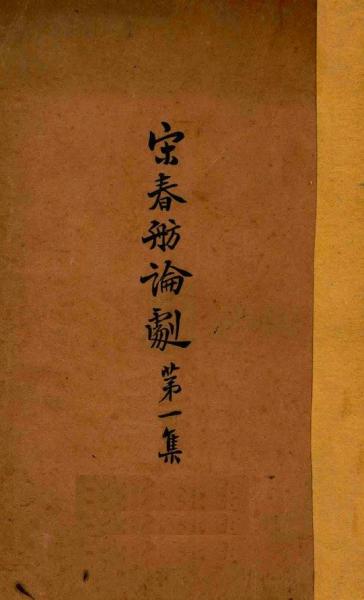 宋春舫論劇第一集